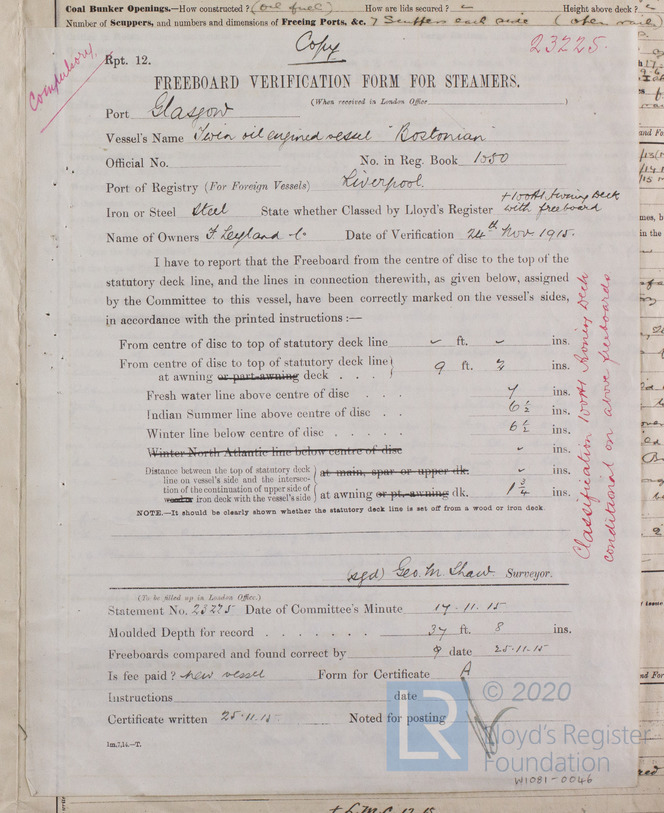 Coal Bunker Openings.—How constructed? (oil fuel) How are lids secured? Height above deck?
Number of Scuppers, and numbers and dimensions of Freeing Ports, &c. 7 Scuppers each side (open rails)
Copy
23225.
Compulsory
Rpt. 12.
FREEBOARD VERIFICATION FORM FOR STEAMERS.
(When received in London Office )
Port Glasgow
Vessel's Name Twin oil engined vessel "Bostonian"
Official No. No. in Reg. Book 1550
Port of Registry (For Foreign Vessels) Liverpool.
Iron or Steel Steel State whether Classed by Lloyd's Register +100A1 Awning Deck with freeboard
Name of Owners F Leyland & Co Date of Verification 24th Nov 1915.
I have to report that the Freeboard from the centre of disc to the top of the
statutory deck line, and the lines in connection therewith, as given below, assigned
by the Committee to this vessel, have been correctly marked on the vessel's sides,
in accordance with the printed instructions :—
From centre of disc to top of statutory deck line ft. ins.
From centre of disc to top of statutory deck line
at awning or part-awning deck . . . 9 ft. ins.
Fresh water line above centre of disc . . . 7 ins.
Indian Summer line above centre of disc . . 6 1/2 ins.
Winter line below centre of disc . . . . . 6 1/2 ins.
Winter North Atlantic line below centre of disc ins.
Distance between the top of statutory deck
line on vessel's side and the intersec-
tion of the continuation of upper side of
wood or iron deck with the vessel's side
at main, spar or upper dk. ins.
at awning or pt. awning dk. 1 3/4 ins.
NOTE.—It should be clearly shown whether the statutory deck line is set off from a wood or iron deck.
Classification 100A1 Awning Deck
conditional on above freeboards
(sgd) Geo. M. Shaw. Surveyor.
(To be filled up in London Office.)
Statement No. 23225 Date of Committee's Minute 17.11.15
Moulded Depth for record . . . . . . . 37 ft. 8 ins.
Freeboards compared and found correct by date 25.11.15
Is fee paid? new vessel Form for Certificate A
Instructions date
Certificate written 25.11.15 Noted for posting
1m,7,14.—T.
LR
© 2020
Lloyd's Register
Foundation
W1081-0046